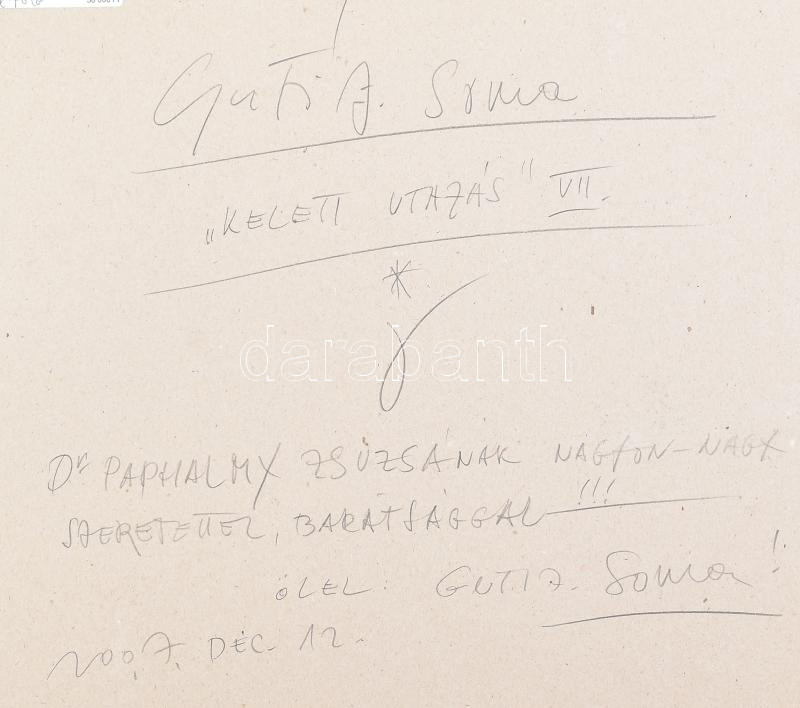 Guti J. Soma
„KELETI UTAZÁS" VII.
*
darabanth
Dr PAPHALMY ZSUZSÁNAK NAGYON-NAGY
SZERETETTEL, BARÁTSÁGGAL !!!
ÖLEL: GUTI J. Soma!
2007. DEC. 12.